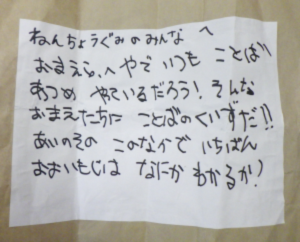 ねんちょうぐみのみんな へ
おまえら、へやで いつも ことば
あつめ やているだろう! そんな
おまえたちに ことばのくいずだ!!
あいのその このなかで いちばん
おおいもじは なにか わかるか?